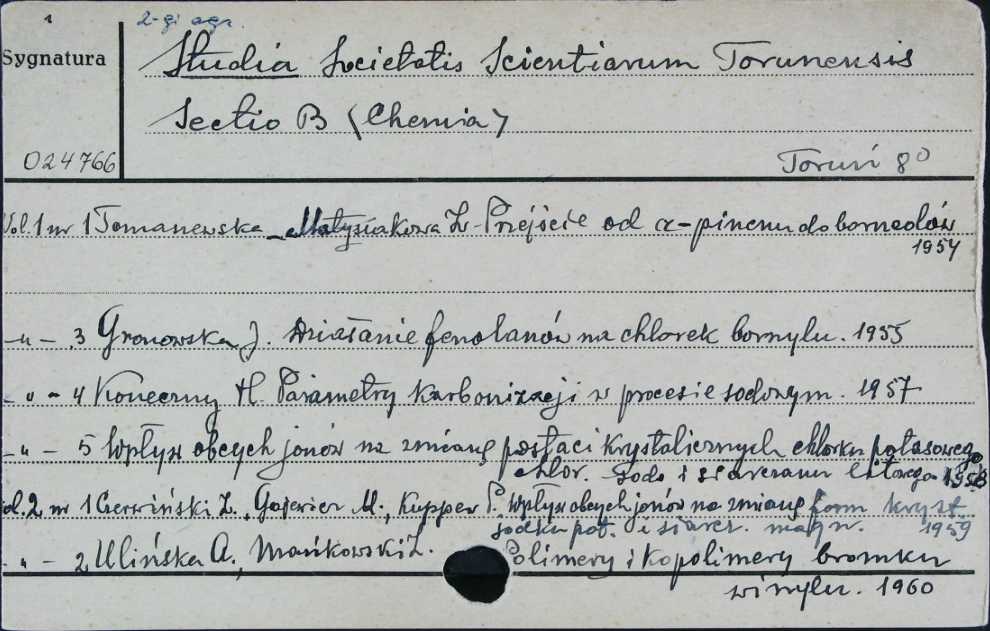 2-gi egz.
Sygnatura
Studia Societatis Scientiarum Torunensis
Sectio B (Chemia)
024766
Toruń 8°
Vol. 1 nr 1 Tomanewska-Matysiakowa Z. Przejście od α-pinenu do borneolów
1954
-"- 3 Gronowska J. Działanie fenolanów na chlorek bornylu. 1955
-"- 4 Konieczny H. Parametry karbonizacji w procesie sodowym. 1957
-"- 5 Wpływ obcych jonów na zmianę postaci krystalicznych chlorku potasowego,
chlor. sodo i siarczanu litowego 1958
Vol. 2 nr 1 Czerwiński Z., Gajewier M., Kupper P. Wpływ obcych jonów na zmianę form kryst.
jodku pot. i siarcz. magn. 1959
-"- 2 Ulińska A., Mańkowski Z. Polimery i kopolimery bromku
winylu. 1960